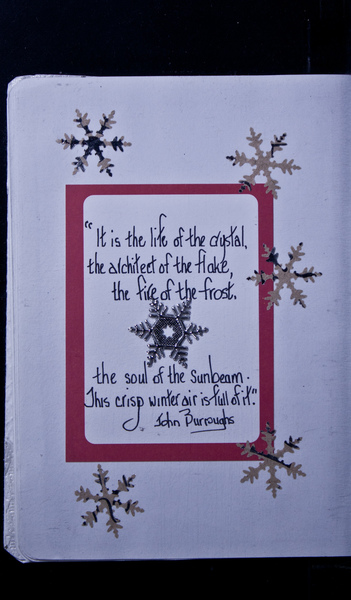 "It is the life of the crystal,
the architect of the flake,
the fire of the frost.
the soul of the sunbeam.
This crisp winter air is full of it."
John Burroughs